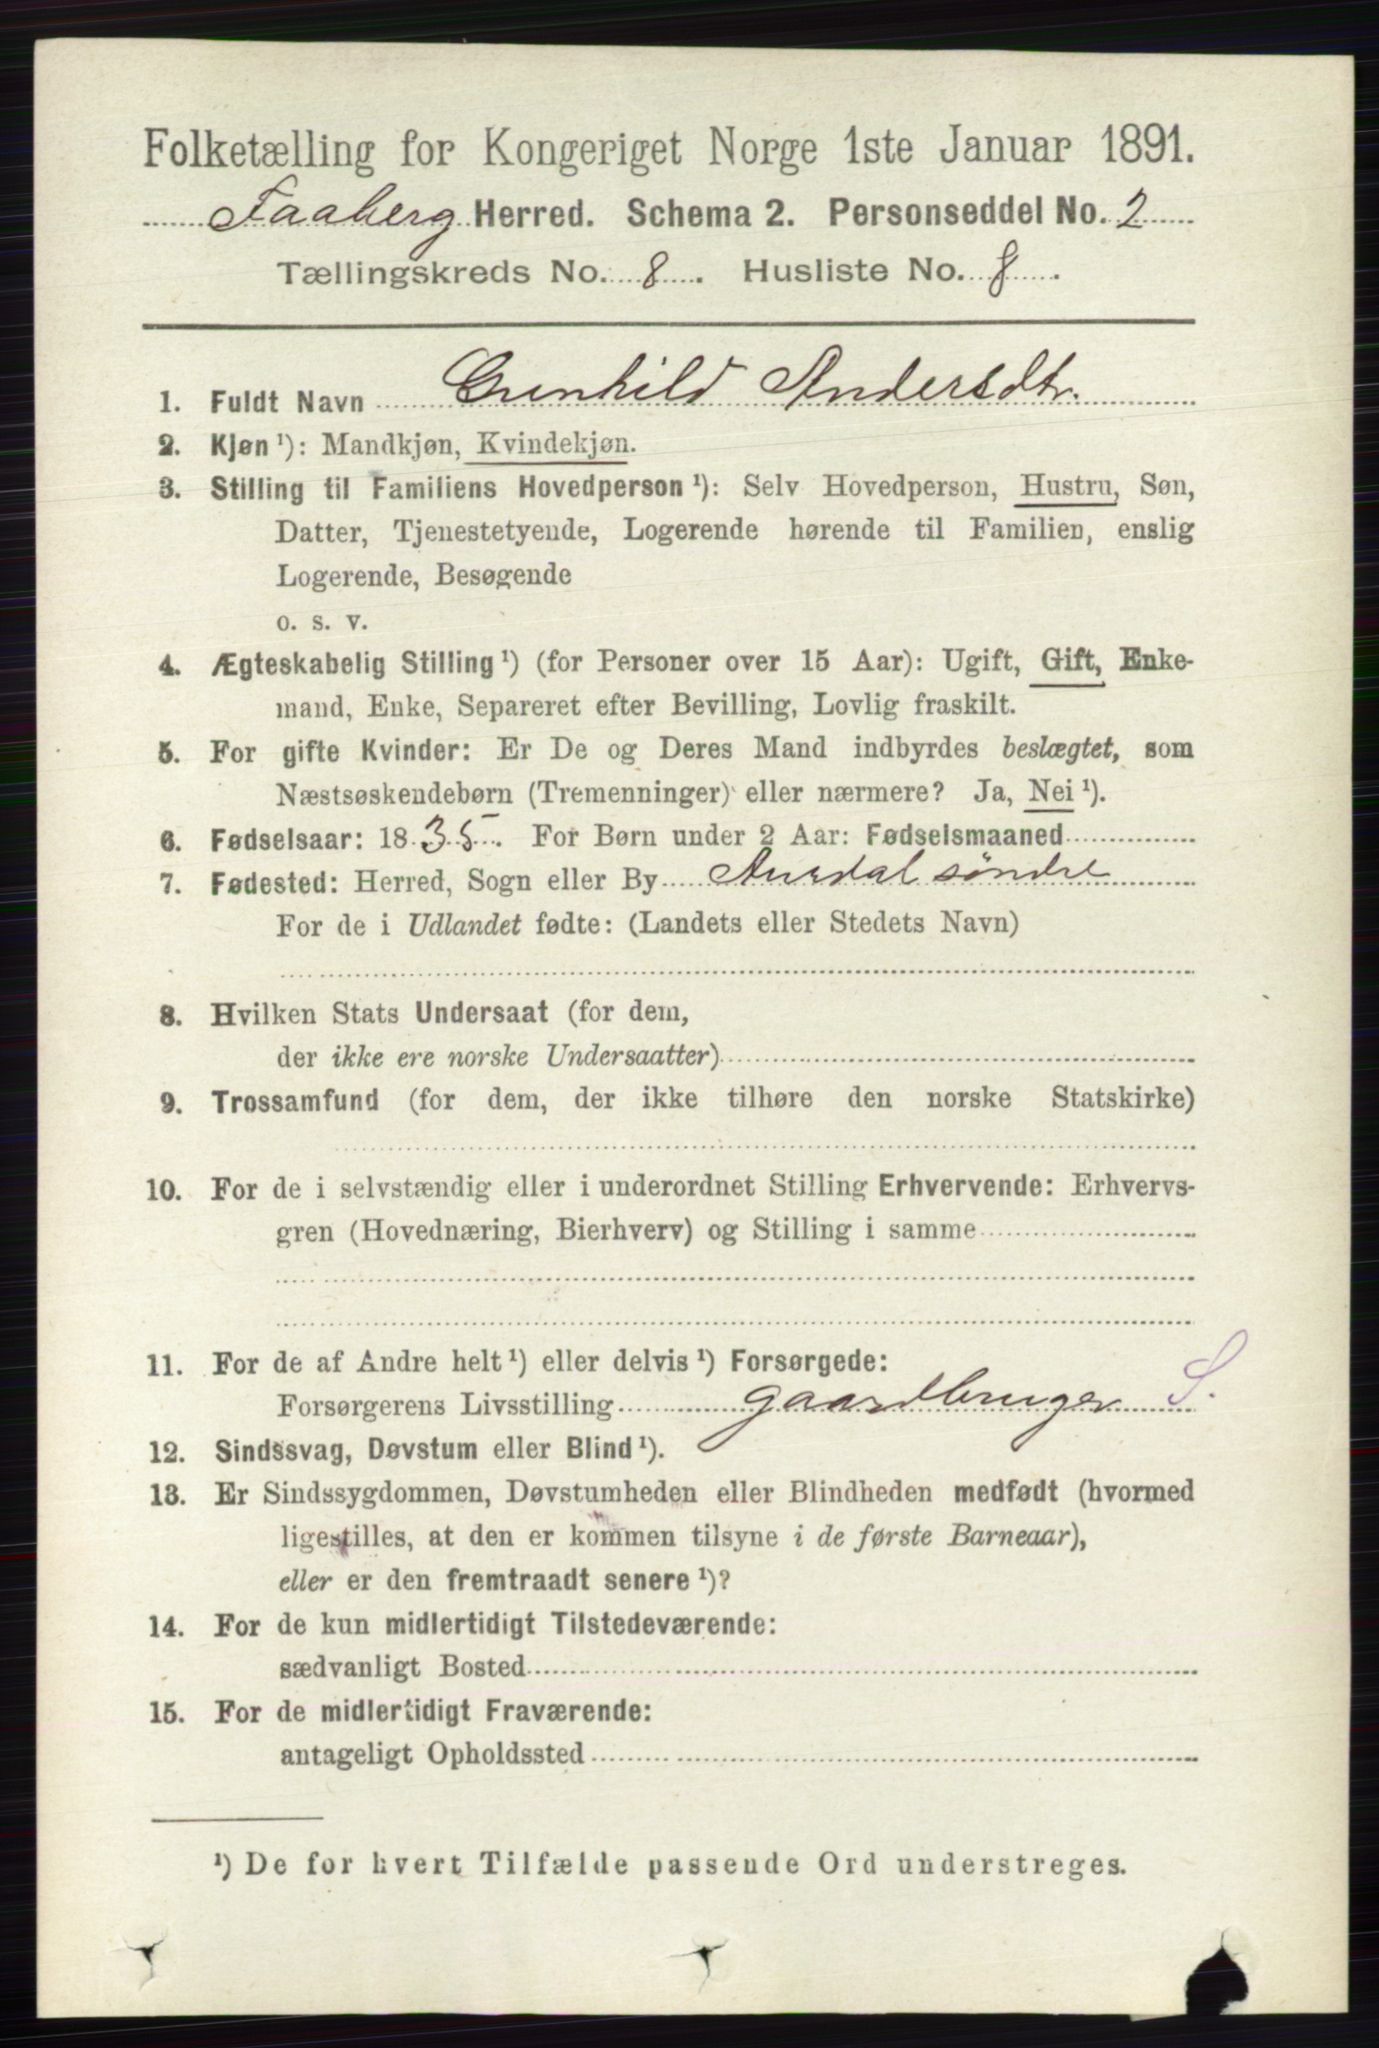 Folketælling for Kongeriget Norge 1ste Januar 1891.
Faaberg Herred. Schema 2. Personseddel No. 2
Tællingskreds No. 8. Husliste No. 8.
1. Fuldt Navn Gunhild Andersdtr.
2. Kjøn ¹): Mandkjøn, Kvindekjøn.
3. Stilling til Familiens Hovedperson ¹): Selv Hovedperson, Hustru, Søn,
Datter, Tjenestetyende, Logerende hørende til Familien, enslig
Logerende, Besøgende
o. s. v.
4. Ægteskabelig Stilling ¹) (for Personer over 15 Aar): Ugift, Gift, Enke-
mand, Enke, Separeret efter Bevilling, Lovlig fraskilt.
5. For gifte Kvinder: Er De og Deres Mand indbyrdes beslægtet, som
Næstsøskendebørn (Tremenninger) eller nærmere? Ja, Nei ¹).
6. Fødselsaar: 1835. For Børn under 2 Aar: Fødselsmaaned
7. Fødested: Herred, Sogn eller By Aurdal søndre
For de i Udlandet fødte: (Landets eller Stedets Navn)
8. Hvilken Stats Undersaat (for dem,
der ikke ere norske Undersaatter)
9. Trossamfund (for dem, der ikke tilhøre den norske Statskirke)
10. For de i selvstændig eller i underordnet Stilling Erhvervende: Erhvervs-
gren (Hovednæring, Bierhverv) og Stilling i samme
11. For de af Andre helt ¹) eller delvis ¹) Forsørgede:
Forsørgerens Livsstilling gaardbruger S.
12. Sindssvag, Døvstum eller Blind ¹).
13. Er Sindssygdommen, Døvstumheden eller Blindheden medfødt (hvormed
ligestilles, at den er kommen tilsyne i de første Barneaar),
eller er den fremtraadt senere ¹)?
14. For de kun midlertidigt Tilstedeværende:
sædvanligt Bosted
15. For de midlertidigt Fraværende:
antageligt Opholdssted
¹) De for hvert Tilfælde passende Ord understreges.